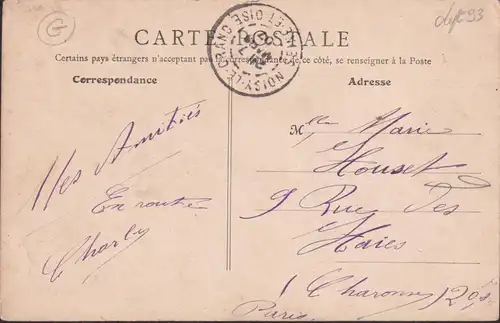 dept 93
CARTE POSTALE
NOISY-LE-GRAND
SEINE-ET-OISE
Certains pays étrangers n'acceptant pas la correspondance de ce côté, se renseigner à la Poste
Correspondance
Adresse
Mes Amitiés
En route
Charly
Mlle Marie
Housset
9 Rue des
Haies
(Charonne) 20e
Paris